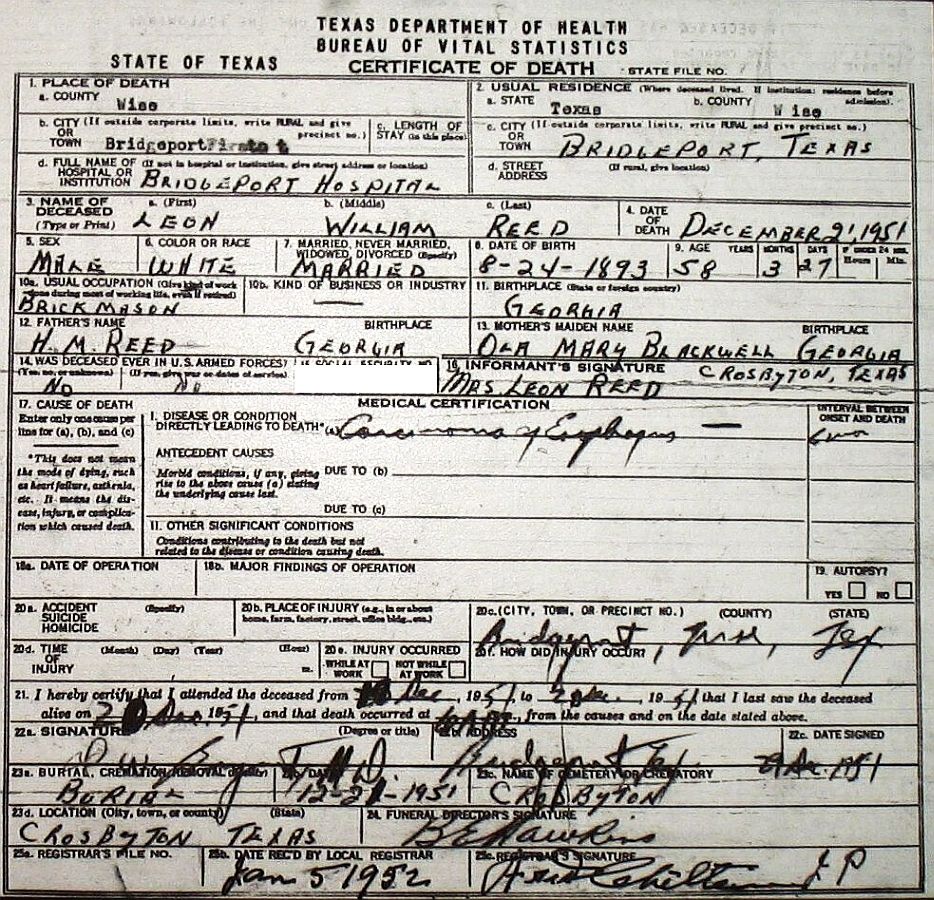 TEXAS DEPARTMENT OF HEALTH
BUREAU OF VITAL STATISTICS
STATE OF TEXAS
CERTIFICATE OF DEATH
STATE FILE NO.
1. PLACE OF DEATH
a. COUNTY
Wise
2. USUAL RESIDENCE (Where deceased lived. If institution: residence before admission).
a. STATE
Texas
b. COUNTY
Wise
b. CITY (If outside corporate limits, write RURAL and give precinct no.)
OR
TOWN
Bridgeport
c. LENGTH OF
STAY (in this place)
c. CITY (If outside corporate limits, write RURAL and give precinct no.)
OR
TOWN
BRIDGEPORT, TEXAS
d. FULL NAME OF (If not in hospital or institution, give street address or location)
HOSPITAL OR
INSTITUTION
BRIDGEPORT HOSPITAL
d. STREET
ADDRESS
(If rural, give location)
3. NAME OF
DECEASED
(Type or Print)
a. (First)
LEON
b. (Middle)
WILLIAM
c. (Last)
REED
4. DATE
OF
DEATH
DECEMBER 21 1951
5. SEX
MALE
6. COLOR OR RACE
WHITE
7. MARRIED, NEVER MARRIED,
WIDOWED, DIVORCED (Specify)
MARRIED
8. DATE OF BIRTH
8-24-1893
9. AGE YEARS MONTHS DAYS
58 3 27
IF UNDER 24 HRS.
Hours Min.
10a. USUAL OCCUPATION (Give kind of work
done during most of working life, even if retired)
BRICK MASON
10b. KIND OF BUSINESS OR INDUSTRY
—
11. BIRTHPLACE (State or foreign country)
GEORGIA
12. FATHER'S NAME
H. M. REED
BIRTHPLACE
GEORGIA
13. MOTHER'S MAIDEN NAME
OLA MARY BLACKWELL
BIRTHPLACE
GEORGIA
14. WAS DECEASED EVER IN U.S. ARMED FORCES?
(Yes, no, or unknown) (If yes, give war or dates of service)
NO No
SOCIAL SECURITY NO.
16. INFORMANT'S SIGNATURE
MRS LEON REED
CROSBYTON, TEXAS
17. CAUSE OF DEATH
Enter only one cause per
line for (a), (b), and (c)
*This does not mean
the mode of dying, such
as heart failure, asthenia,
etc. It means the dis-
ease, injury, or complica-
tion which caused death.
MEDICAL CERTIFICATION
I. DISEASE OR CONDITION
DIRECTLY LEADING TO DEATH* (a)
Carcinoma of Esophagus —
INTERVAL BETWEEN
ONSET AND DEATH
ANTECEDENT CAUSES
Morbid conditions, if any, giving
rise to the above cause (a) stating
the underlying cause last.
DUE TO (b)
DUE TO (c)
II. OTHER SIGNIFICANT CONDITIONS
Conditions contributing to the death but not
related to the disease or condition causing death.
18a. DATE OF OPERATION
18b. MAJOR FINDINGS OF OPERATION
19. AUTOPSY?
YES NO
20a. ACCIDENT
SUICIDE
HOMICIDE
(Specify)
20b. PLACE OF INJURY (e.g., in or about
home, farm, factory, street, office bldg., etc.)
20c. (CITY, TOWN, OR PRECINCT NO.) (COUNTY) (STATE)
Bridgeport, Wise, Tex
20d. TIME
OF
INJURY
(Month) (Day) (Year) (Hour)
m.
20e. INJURY OCCURRED
WHILE AT
WORK
NOT WHILE
AT WORK
20f. HOW DID INJURY OCCUR?
21. I hereby certify that I attended the deceased from Dec, 1951, to , 1951 that I last saw the deceased
alive on Dec. 1951, and that death occurred at , from the causes and on the date stated above.
22a. SIGNATURE
(Degree or title)
22b. ADDRESS
Bridgeport Tex
22c. DATE SIGNED
1951
23a. BURIAL, CREMATION, REMOVAL
BURIAL
23b. DATE
12-21-1951
23c. NAME OF CEMETERY OR CREMATORY
CROSBYTON
23d. LOCATION (City, town, or county) (State)
CROSBYTON TEXAS
24. FUNERAL DIRECTOR'S SIGNATURE
Hawkins
25a. REGISTRAR'S FILE NO.
25b. DATE REC'D BY LOCAL REGISTRAR
Jan 5 1952
25c. REGISTRAR'S SIGNATURE
J P